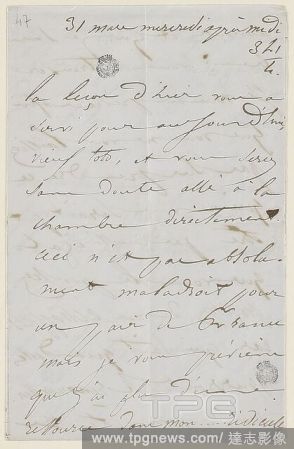 47
31 mars mercredi après midi
3 h 1/4
La leçon d'hier vous a
servi pour aujourd'hui,
et vous serez
sans doute allé à la
chambre directement.
Ceci n'est pas absolu-
ment maladroit pour
un pair de France
mais je vous préviens
que j'ai plus d'une
ressource dans mon ridicule
TPG
www.tpgnews.com / 達志影像